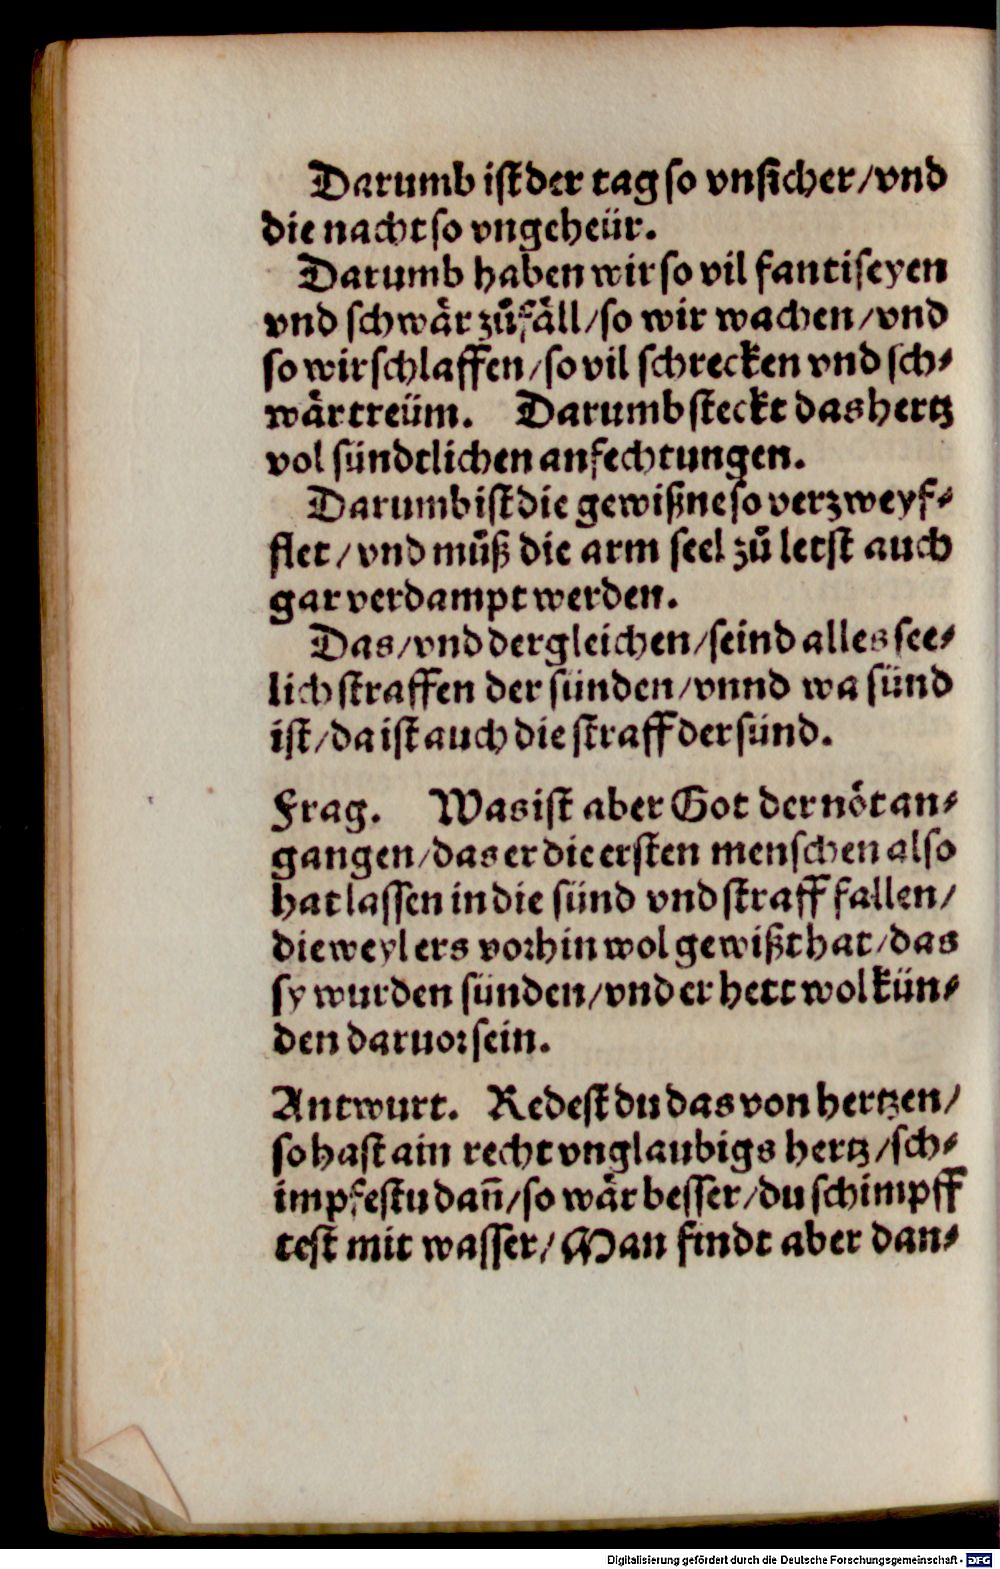 Darumb ist der tag so vnsicher/vnd
die nacht so vngeheür.
Darumb haben wir so vil fantiseyen
vnd schwär zůfäll/so wir wachen/vnd
so wir schlaffen/so vil schrecken vnd sch⸗
wär treüm. Darumb steckt das hertz
vol sündtlichen anfechtungen.
Darumb ist die gewißne so verzweyf⸗
flet/vnd můß die arm seel zů letst auch
gar verdampt werden.
Das/vnd dergleichen/seind alles see⸗
lich straffen der sünden/vnnd wa sünd
ist/da ist auch die straff der sünd.
Frag. Was ist aber Got der nöt an⸗
gangen/das er die ersten menschen also
hat lassen in die sünd vnd straff fallen/
dieweyl ers vorhin wol gewißt hat/das
sy wurden sünden/vnd er hett wol kün⸗
den daruor sein.
Antwurt. Redest du das von hertzen/
so hast ain recht vnglaubigs hertz/sch⸗
impfestu dañ/so wär besser/du schimpff
test mit wasser/Man findt aber dan⸗
Digitalisierung gefördert durch die Deutsche Forschungsgemeinschaft - DFG